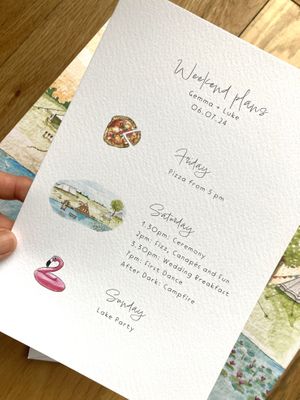 Weekend plans
Gemma + Luke
06.07.24
Friday
Pizza from 5 pm
Saturday
1.30pm: Ceremony
2pm: Fizz, Canapés and Fun
3.30pm: Wedding Breakfast
7pm: First Dance
After Dark: Campfire
Sunday
Lake Party